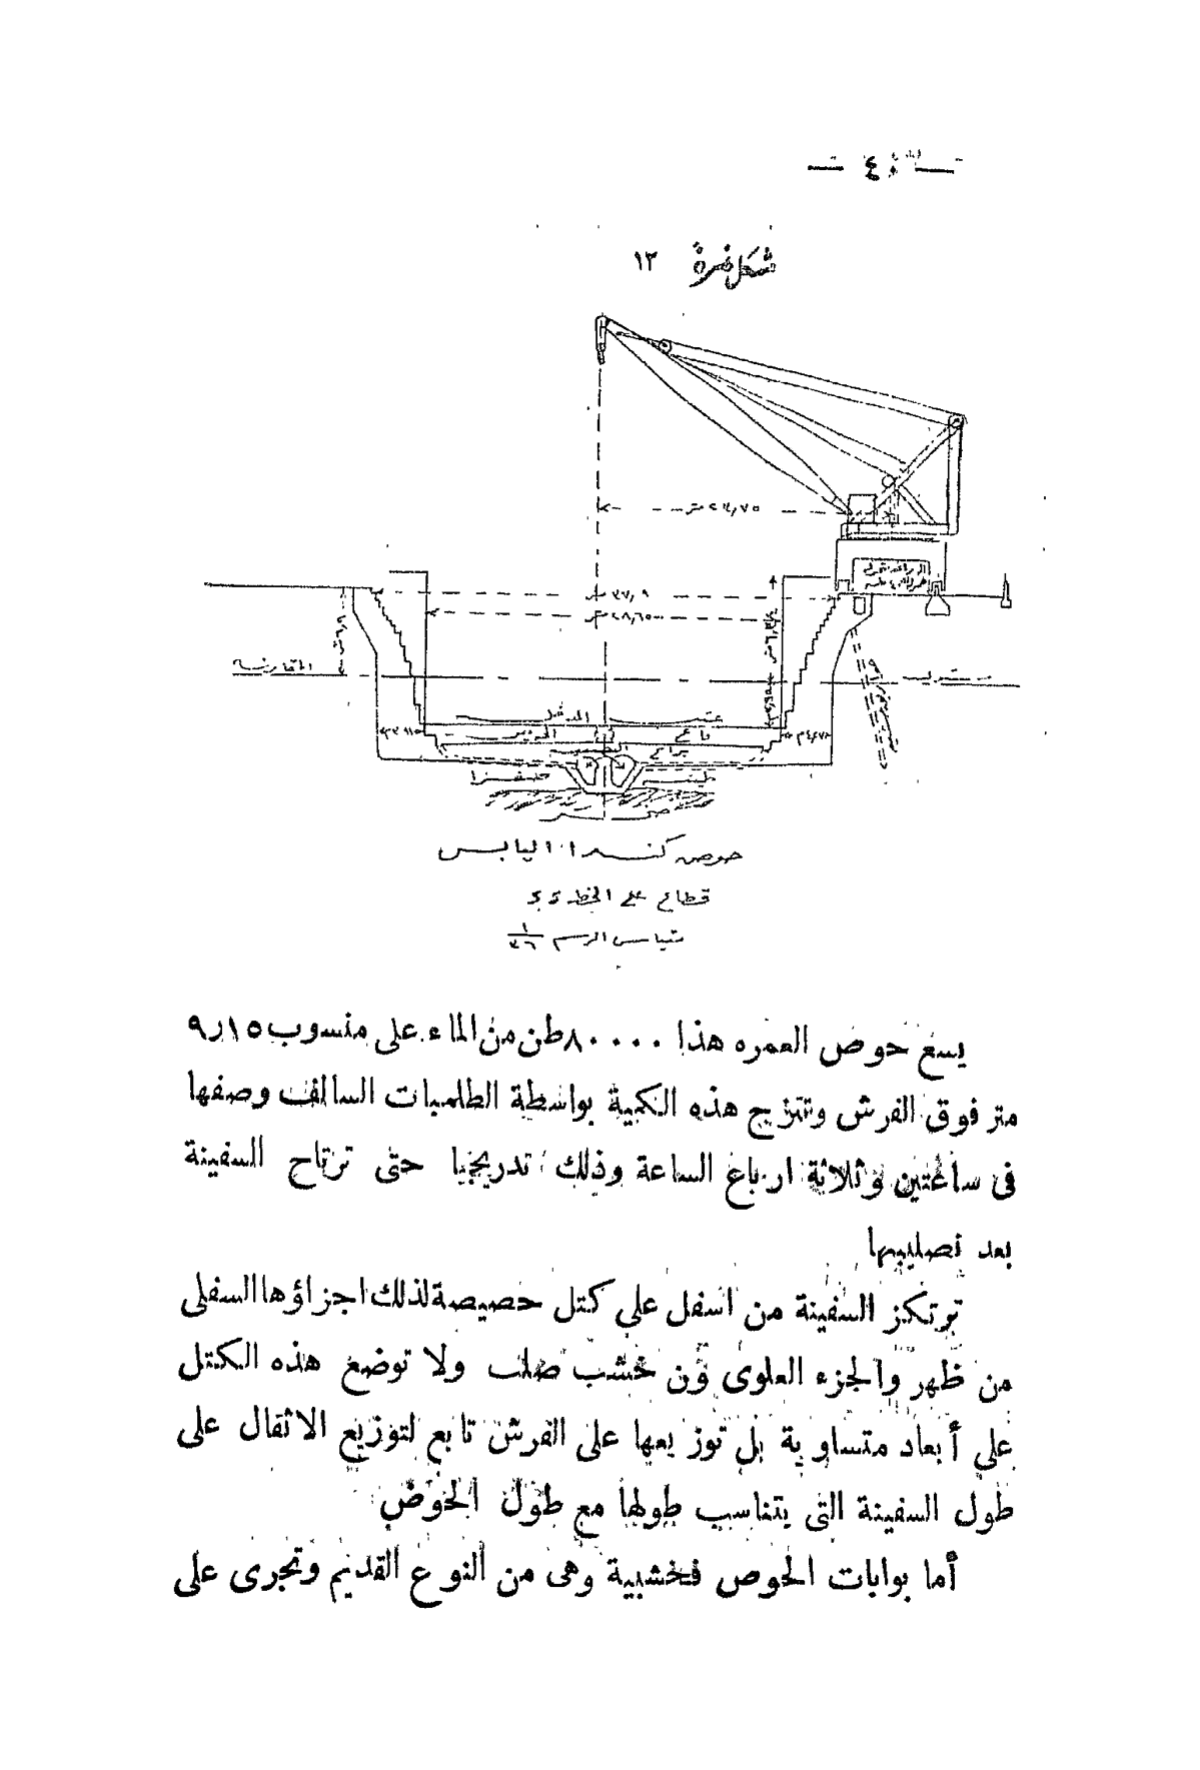 شكل نمرة ١٣
٢٤,٧٥ متر
٣٧,٩ متر
٤٨,٦٥ متر
حوض كندا اليابس
قطاع على الخط
مقياس الرسم
يسع حوض العمره هذا ٨٠٠٠٠ طن من الماء على منسوب ٩٫١٥
متر فوق الفرش وتنزح هذه الكمية بواسطة الطلمبات السالف وصفها
فى ساعتين وثلاثة ارباع الساعة وذلك تدريجيا حتى ترتاح السفينة
بعد تصليبها
ترتكز السفينة من اسفل على كتل خصيصة لذلك اجزاؤها السفلى
من ظهر والجزء العلوى من خشب صلب ولا توضع هذه الكتل
على أبعاد متساوية بل توزيعها على الفرش تابع لتوزيع الاثقال على
طول السفينة التى يتناسب طولها مع طول الحوض
أما بوابات الحوض فخشبية وهى من النوع القديم وتجرى على